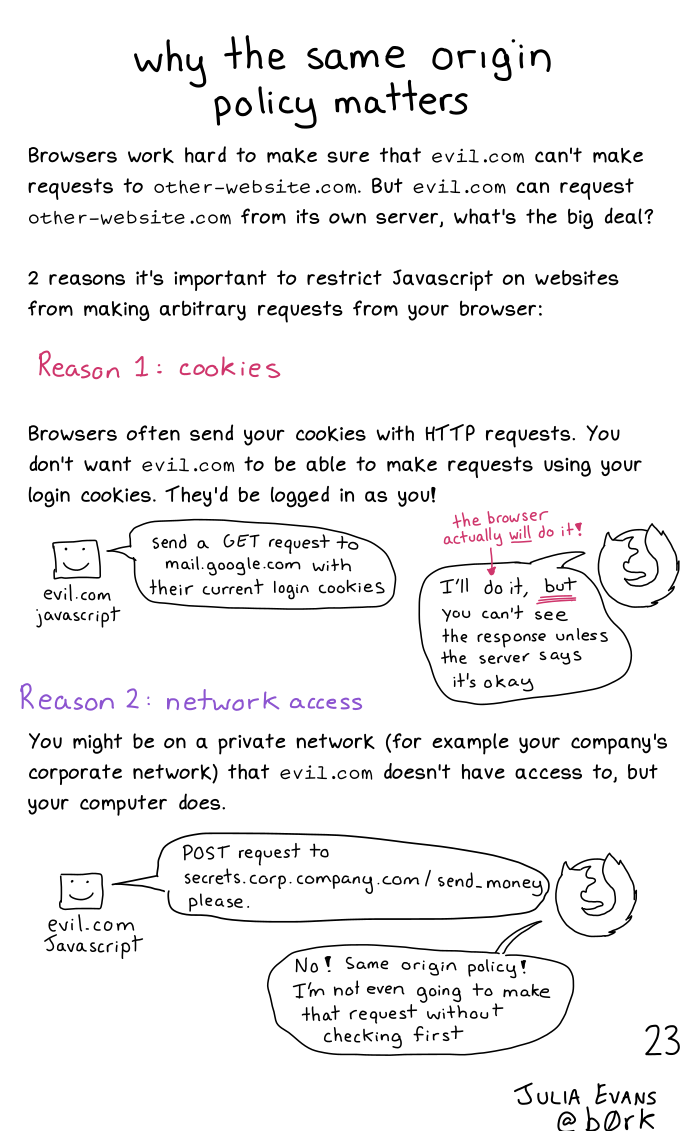 why the same origin
policy matters
Browsers work hard to make sure that evil.com can't make
requests to other-website.com. But evil.com can request
other-website.com from its own server, what's the big deal?
2 reasons it's important to restrict Javascript on websites
from making arbitrary requests from your browser:
Reason 1: cookies
Browsers often send your cookies with HTTP requests. You
don't want evil.com to be able to make requests using your
login cookies. They'd be logged in as you!
send a GET request to
mail.google.com with
their current login cookies
evil.com
javascript
the browser
actually will do it!
I'll do it, but
you can't see
the response unless
the server says
it's okay
Reason 2: network access
You might be on a private network (for example your company's
corporate network) that evil.com doesn't have access to, but
your computer does.
POST request to
secrets.corp.company.com/send_money
please.
evil.com
Javascript
No! Same origin policy!
I'm not even going to make
that request without
checking first
23
JULIA EVANS
@b0rk